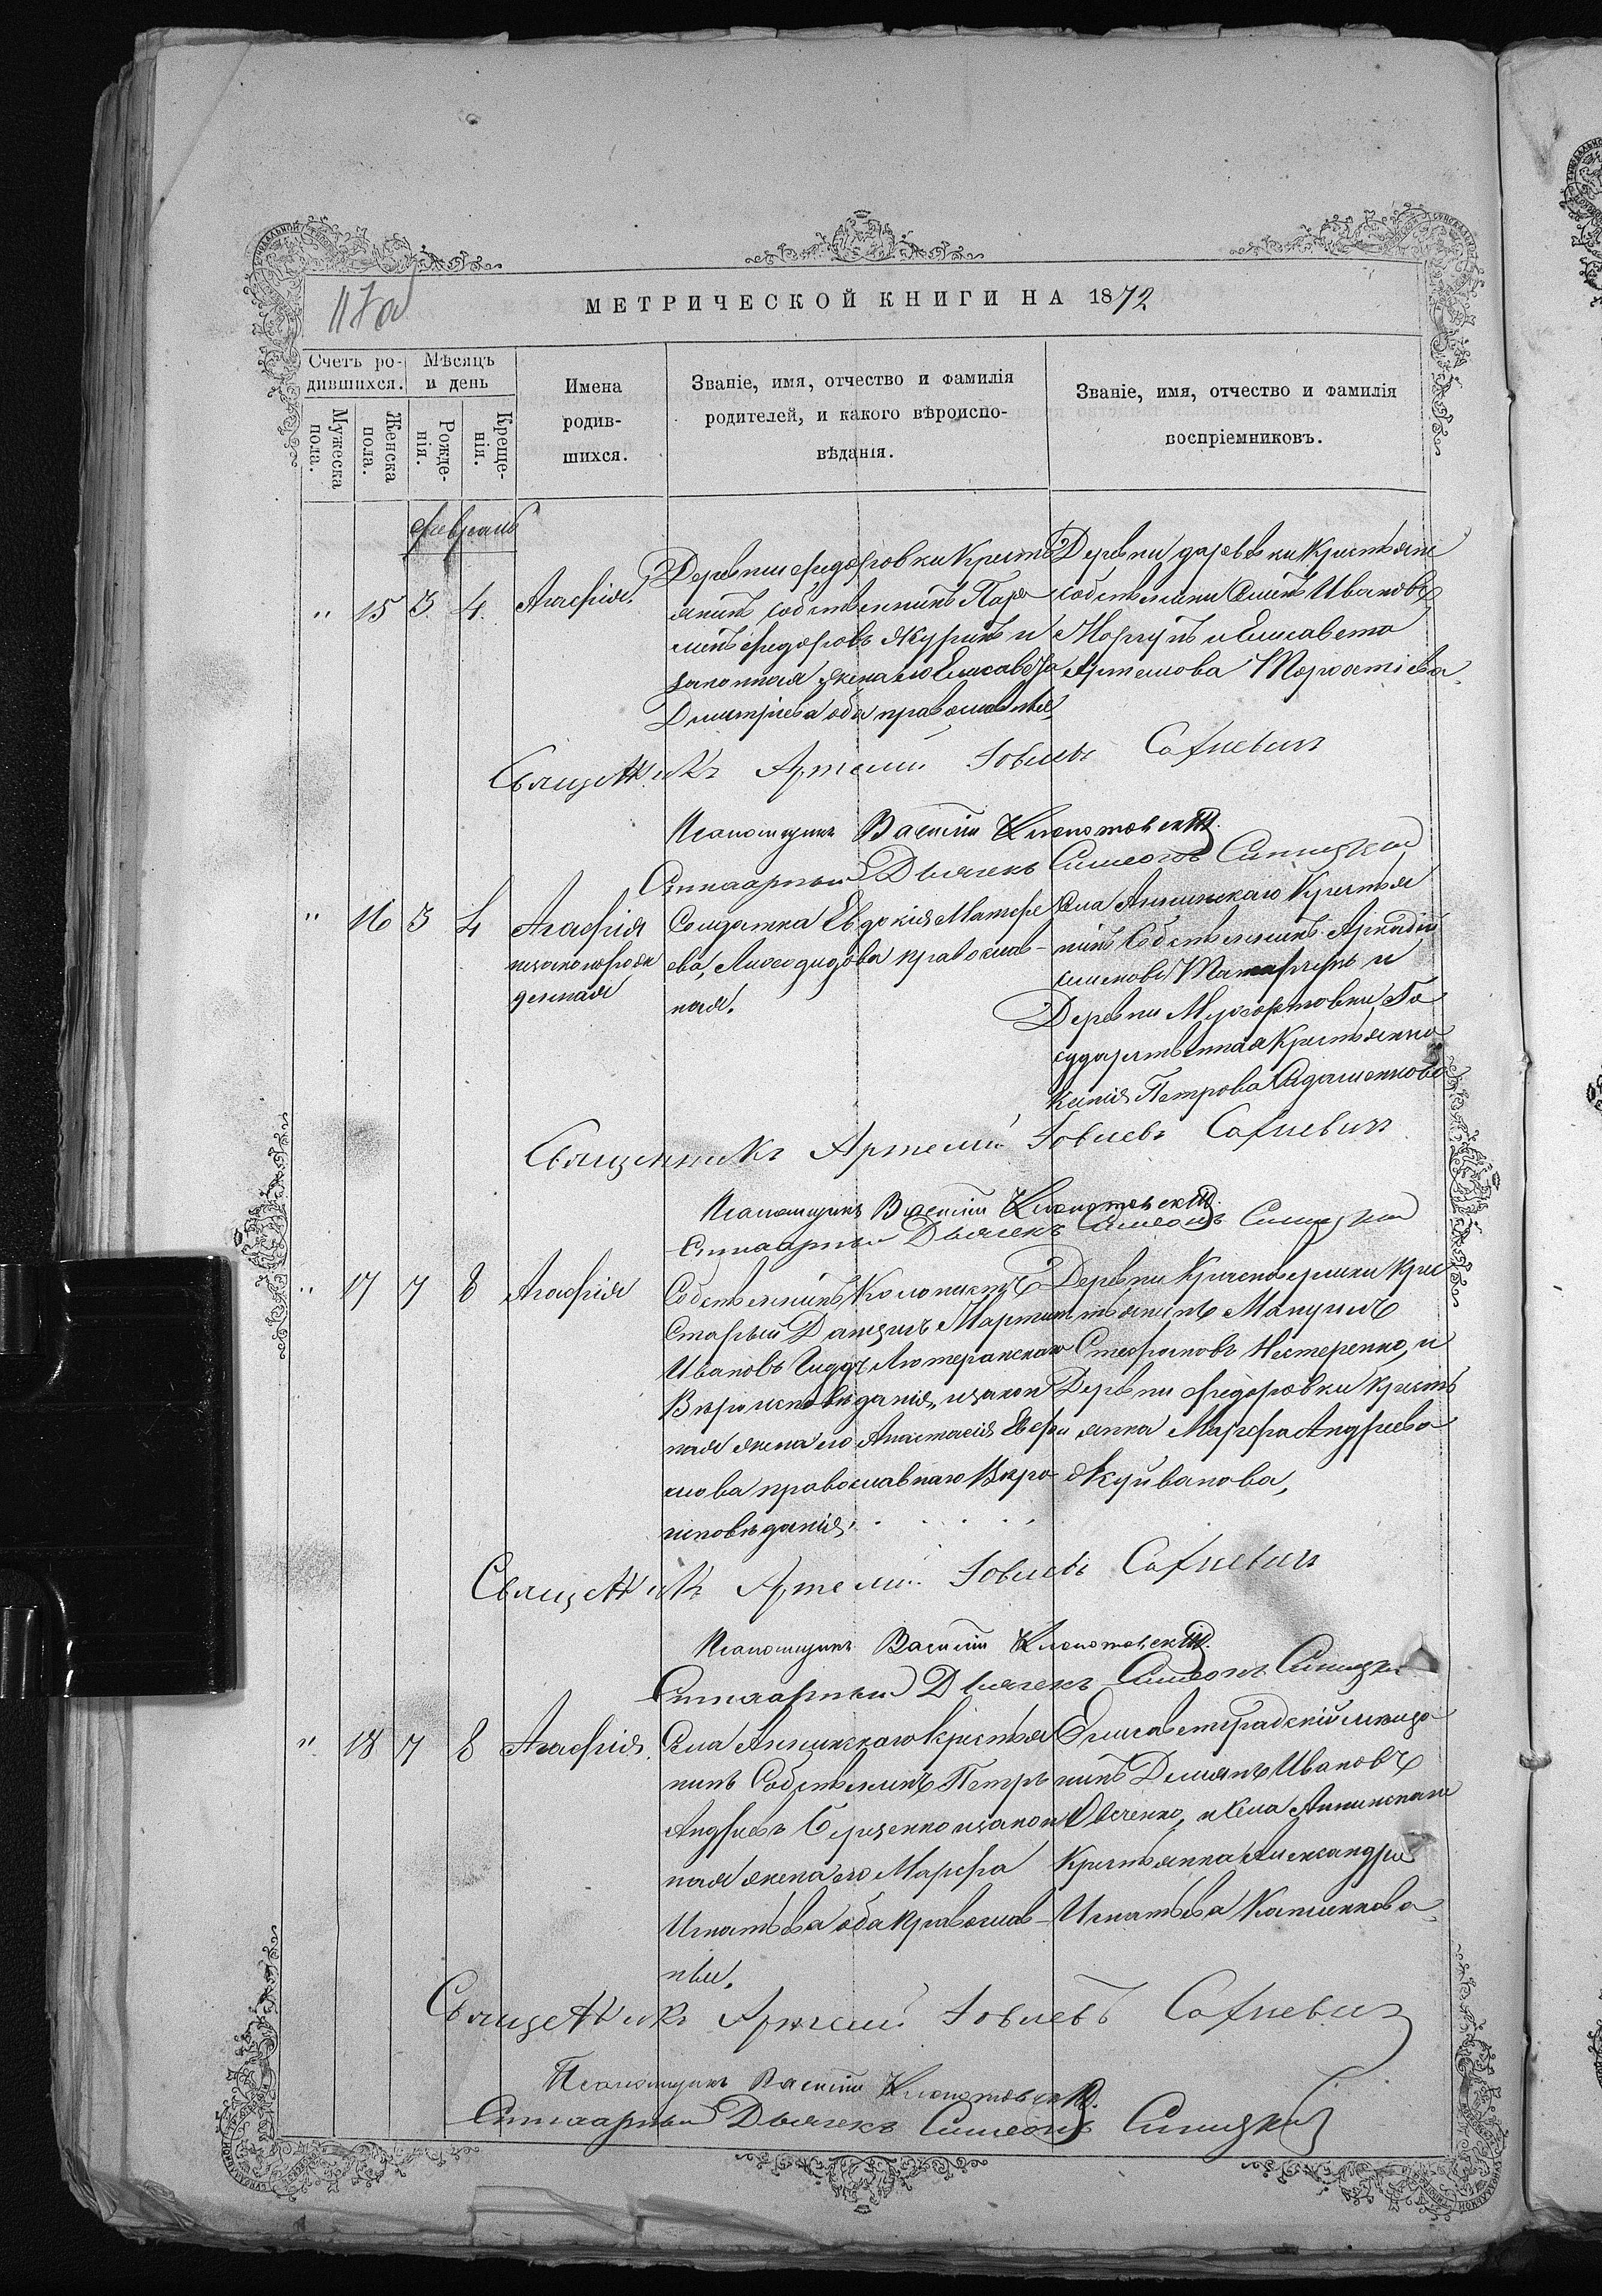 МЕТРИЧЕСКОЙ КНИГИ НА 1872
Счетъ ро-
дившихся.
Мѣсяцъ
и день
Мужеска
пола.
Женска
пола.
Рожде-
нія.
Креще-
нія.
Имена
родив-
шихся.
Званіе, имя, отчество и фамилія
родителей, и какого вѣроиспо-
вѣданія.
Званіе, имя, отчество и фамилія
воспріемниковъ.
февраль
" 15 3. 4. Агафія.
Деревни Федоровки Кресть
янинъ собственникъ
Федоровъ и
законная жена его Елисавета
Димитріева оба православные,
Деревни крестьяне
собственники Ивановъ
и Елисавета
Артемова
Священникъ Артемій Іовлевъ Сахневичъ
Псаломщикъ Василій Клопотовскій.
Дьячекъ Симеонъ Синицкій
" 16 3 4 Агафія
незаконорож
денная
Солдатка Евдокія Матфе
ева, православ-
ная.
Села Аннинскаго Крестья
нинъ Собственникъ Аркадій
и
Деревни Го
сударственная Крестьянка
Ксенія Петрова
Священникъ Артемій Іовлевъ Сахневичъ
Псаломщикъ Василій Клопотовскій.
Дьячекъ Симеонъ Синицкій
" 17 7 8 Агафія
Собственникъ Колонистъ
Старый Данцигъ Мартинъ
Ивановъ Лютеранскаго
Вѣроисповѣданія, и закон
ная жена его Анастасія Евфи
мова православнаго Вѣро-
исповѣданія.
Деревни Крес
тьянинъ Мануилъ
Стефановъ Нестеренко, и
Деревни Федоровки Кресть
янка Марфа Андреева
Жуйванова,
Священникъ Артемій Іовлевъ Сахневичъ
Псаломщикъ Василій Клопотовскій.
Дьячекъ Симеонъ Синицкій
" 18 7 8 Агафія.
Села Аннинскаго Крестья
нинъ Собственникъ Петръ
Андреевъ и закон
ная жена его Марфа
Игнатьева оба православ-
ные.
Елисаветградскій мѣща
нинъ Демянъ Ивановъ
и Села Аннинскаго
Крестьянка Александра
Игнатьева
Священникъ Артемій Іовлевъ Сахневичъ
Псаломщикъ Василій Клопотовскій.
Дьячекъ Симеонъ Синицкій